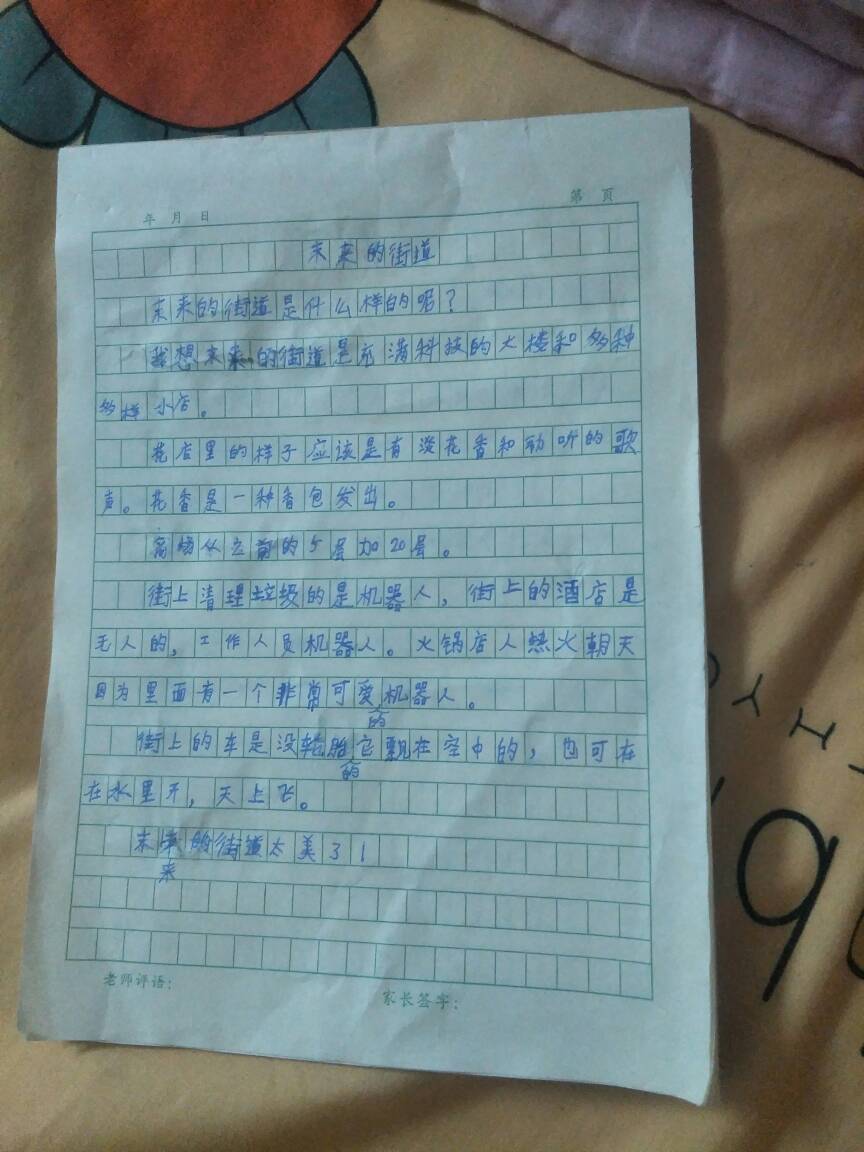 年 月 日
第 页
未来的街道
未来的街道是什么样的呢？
我想未来的街道是充满科技的大楼和多种
多样小店。
花店里的样子应该是有淡花香和动听的歌
声。花香是一种香包发出。
商场从之前的5层加20层。
街上清理垃圾的是机器人，街上的酒店是
无人的，工作人员机器人。火锅店人热火朝天
因为里面有一个非常可爱的机器人。
街上的车是没轮胎的它飘在空中的，也可在
在水里开，天上飞。
未来的街道太美了！
老师评语：
家长签字：